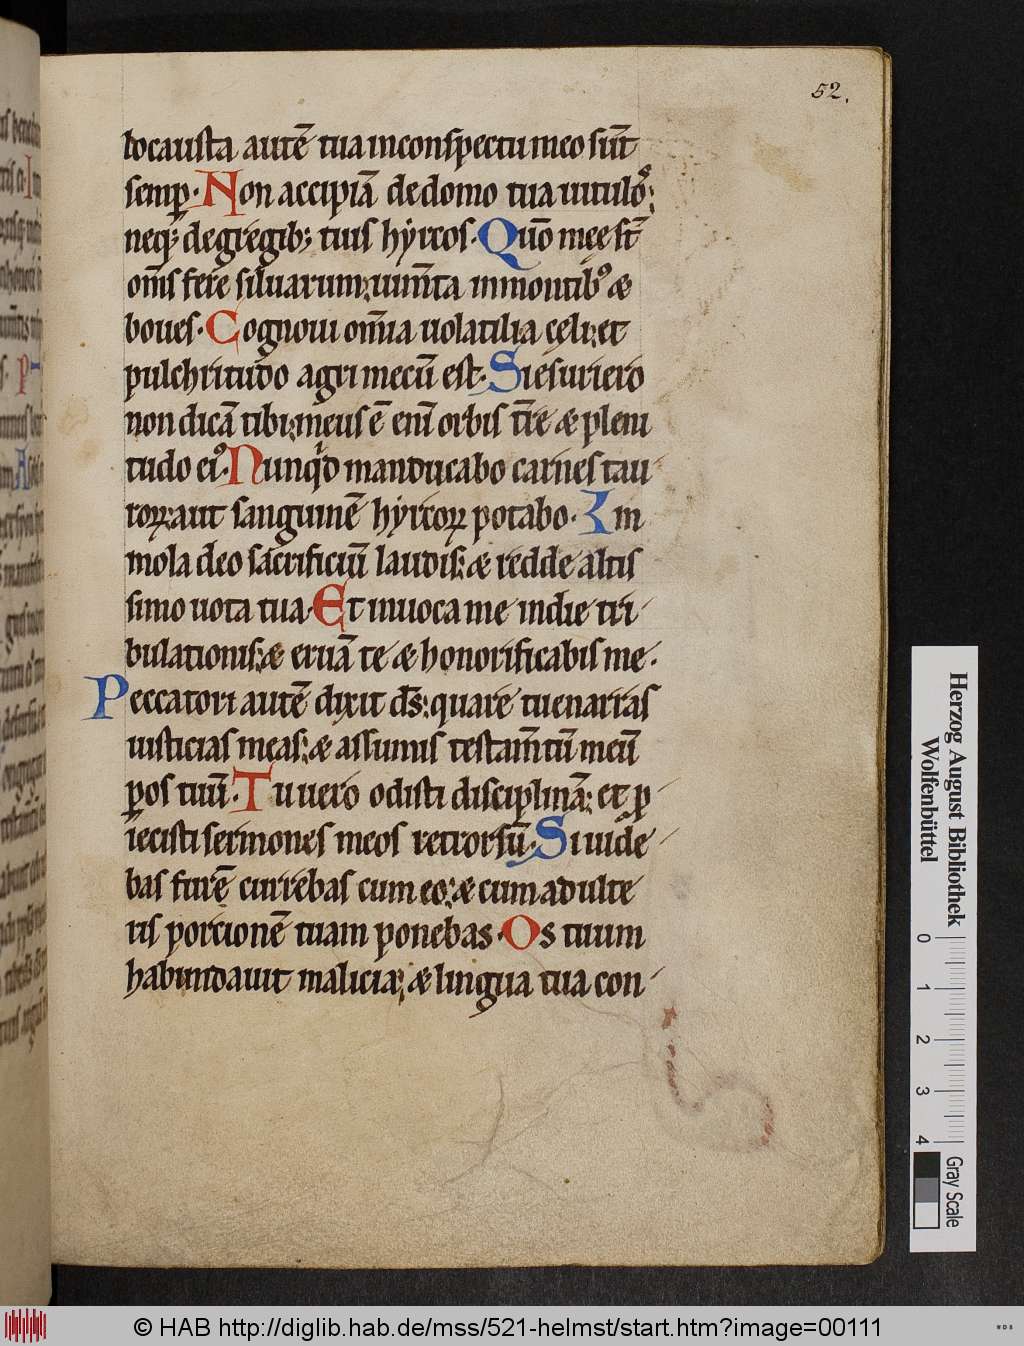 52.
locausta autē tua in conspectu meo sūt
semp̱· Non accipiā de domo tua uituloꝰ:
neq; de gregib; tuis hyrcos· Qm̄o meę st̄
om̄s fere siluarum: ium̄ta in montibꝰ &
boues· Cognoui om̄ia uolatilia cęli: et
pulchritudo agri mecū est· Si esuriero
non dicā tibi: meus ē enī orbis t̄re & pleni
tudo eiꝰ· Nunqͥd manducabo carnes tau-
roꝝ: aut sanguinē hyrcoꝝ potabo· Im
mola deo sacrificiū laudis: & redde altis
simo uota tua· Et inuoca me in die tri-
bulationis: & eruā te & honorificabis me·
Peccatori autē dixit ds̄: quare tu enarras
iusticias meas: & assumis testam̄tū meū
ꝑ os tuū· Tu uero odisti disciplinā: et ꝓ-
iecisti sermones meos retrorsū· Si uide-
bas furē currebas cum eo: & cum adulte
ris porcionē tuam ponebas· Os tuum
habundauit malicia: & lingua tua con-
Herzog August Bibliothek
Wolfenbüttel
0 1 2 3 4
Gray Scale
© HAB http://diglib.hab.de/mss/521-helmst/start.htm?image=00111